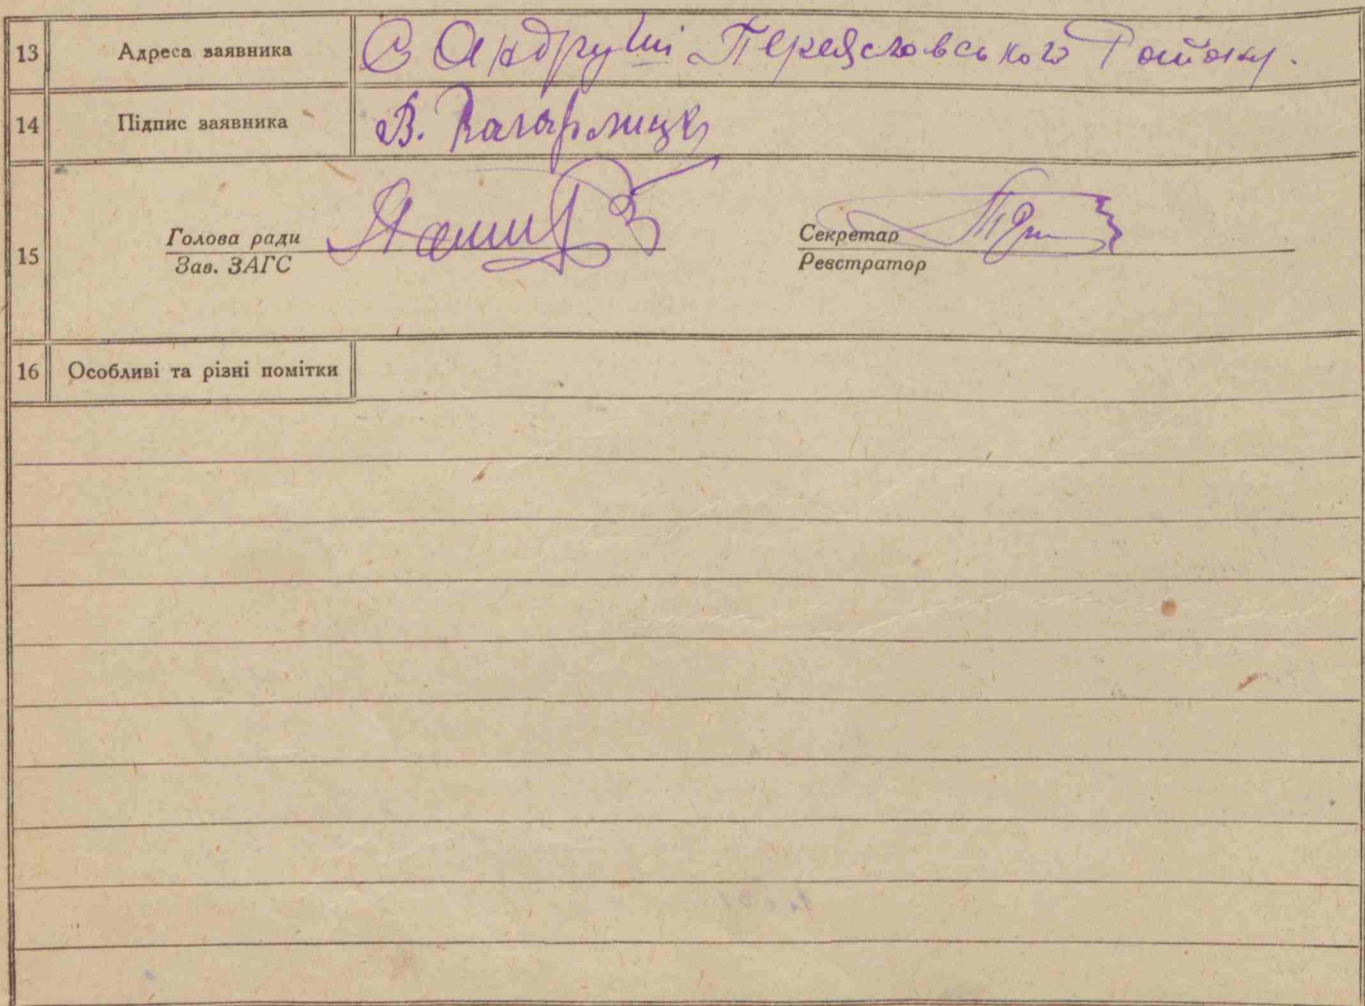 13 Адреса заявника С Андруші Переяславського Району.
14 Підпис заявника В. Кагарлицк
15 Голова ради Секретар
Зав. ЗАГС Реєстратор
16 Особливі та різні помітки